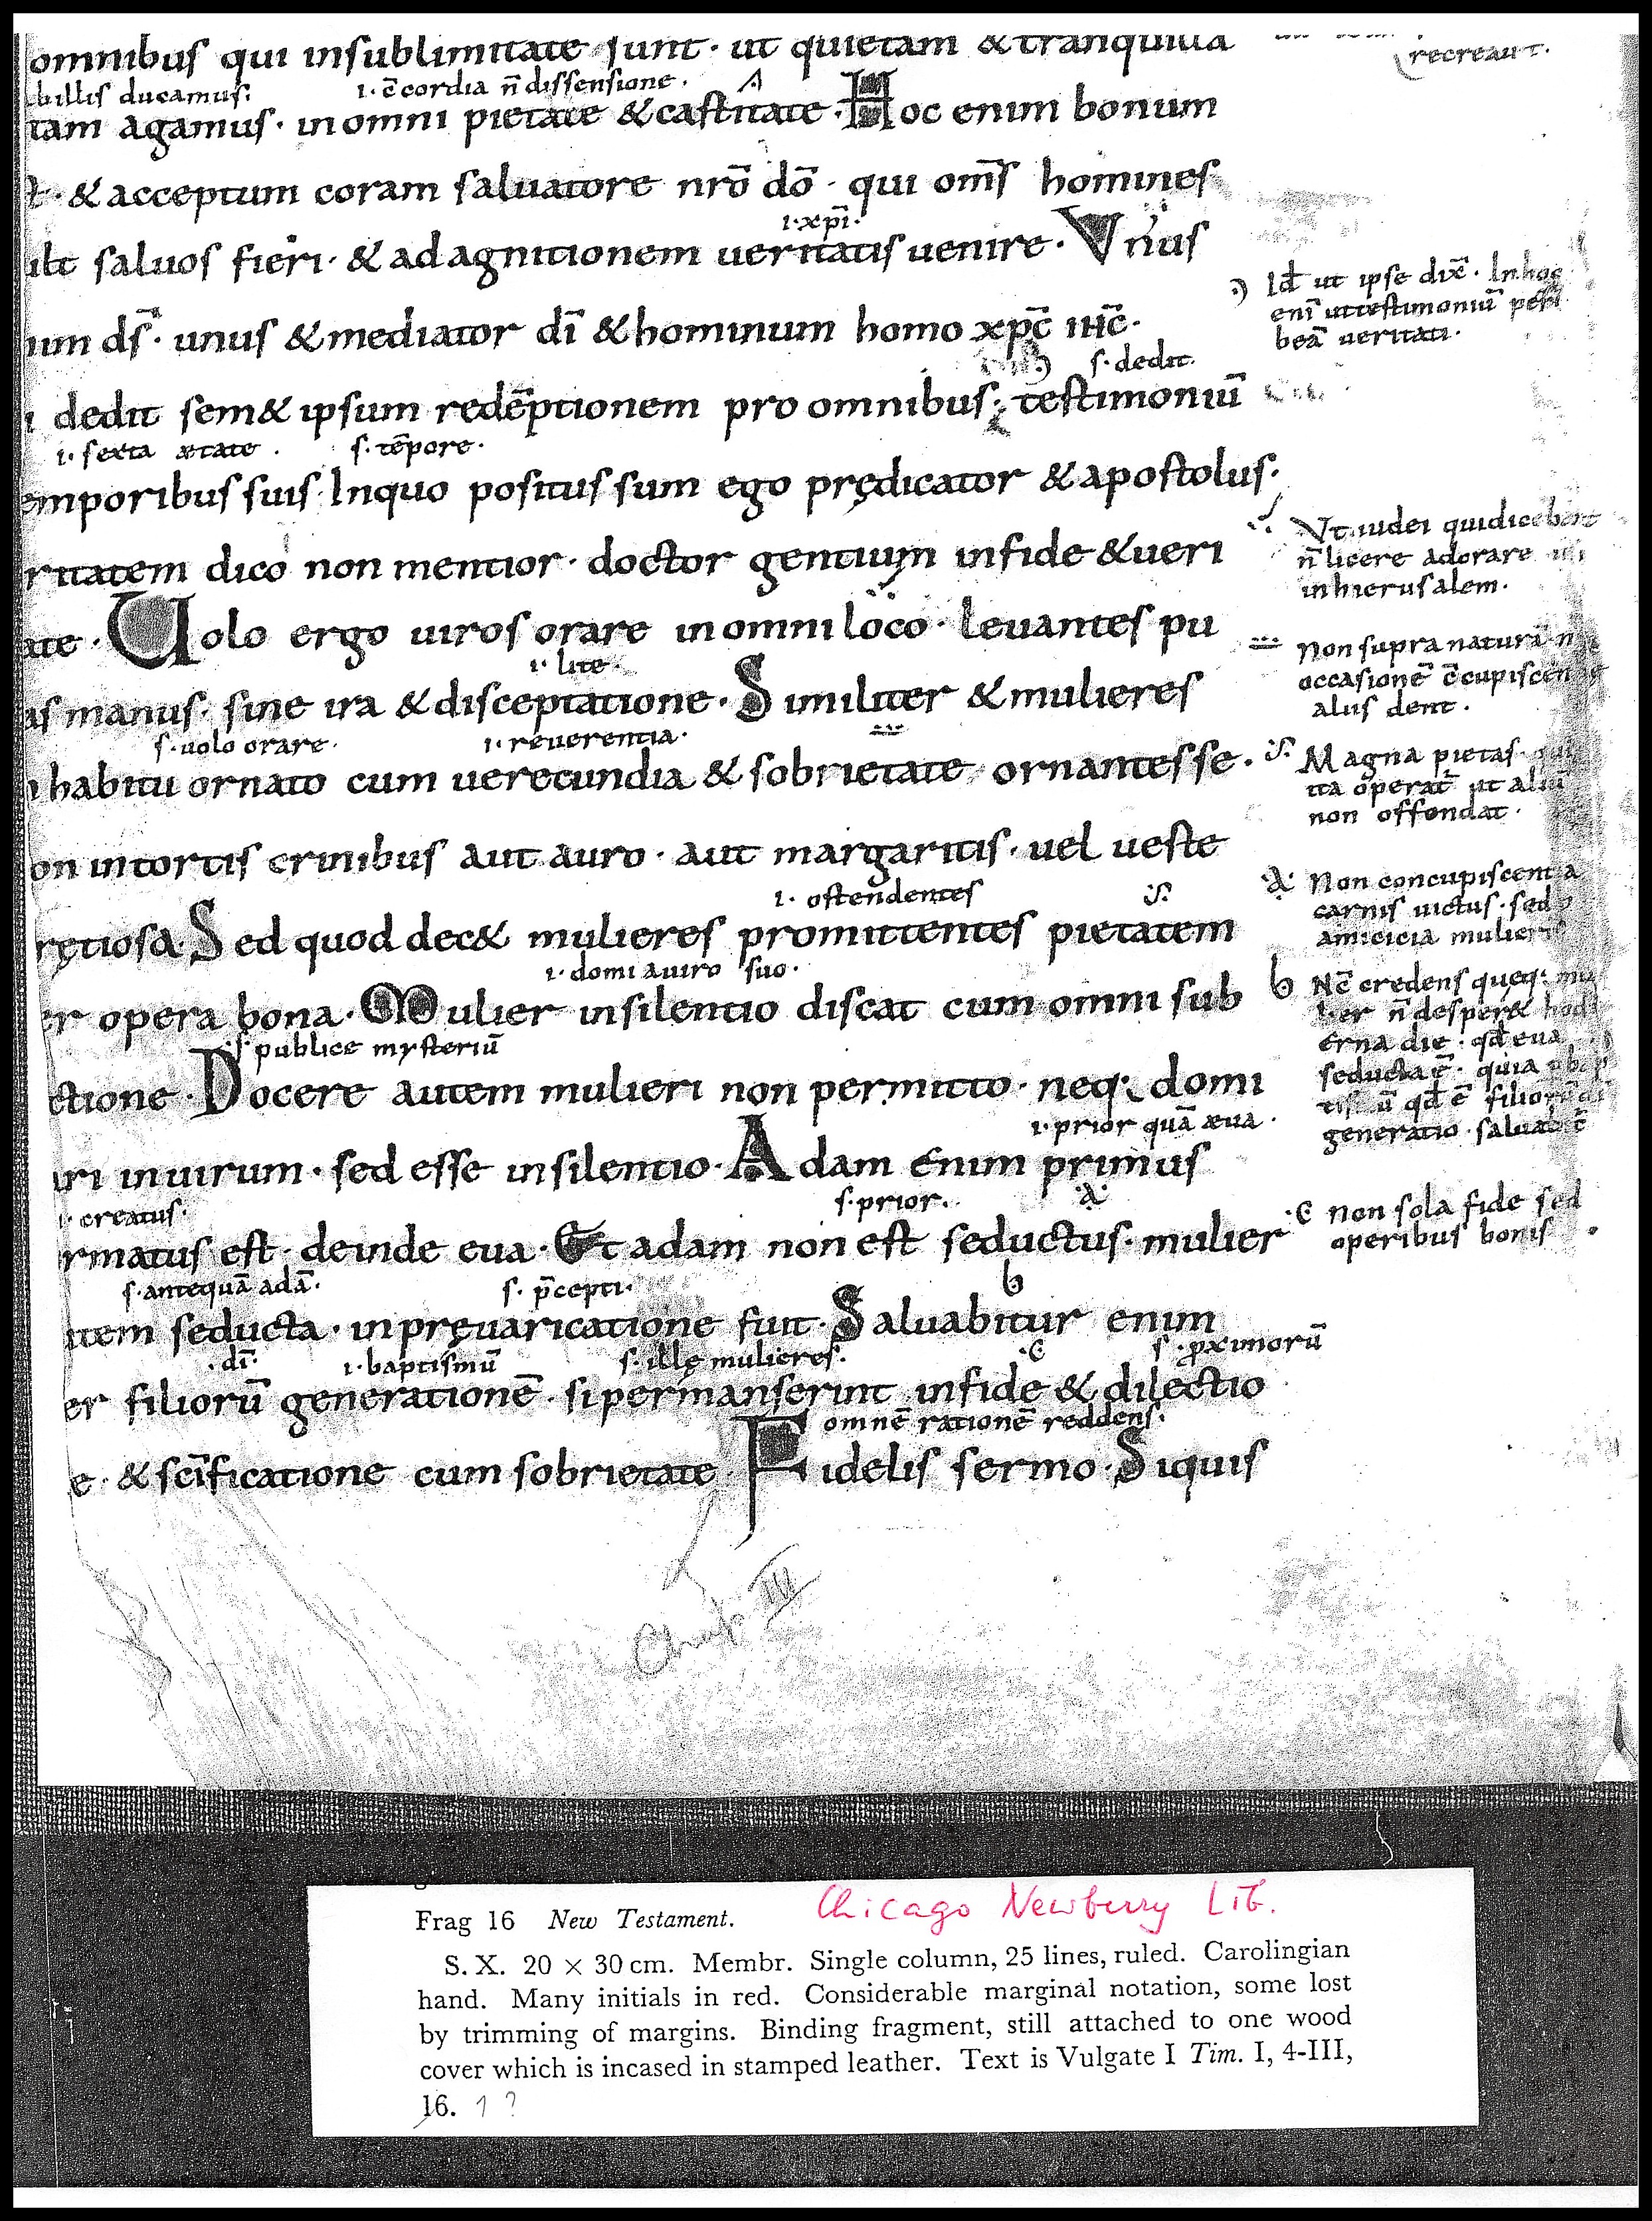 omnibuſ qui inſublimitate ſunt · ut quietam & tranquilla
recreaur̄.
billiſ ducamuſ: ı· c̄cordia n̄ diſſenſione · A
tam agamuſ · in omni pietate & caſtitate · Hoc enim bonum
t · & acceptum coram ſaluatore nr̄o dō · qui om̄ſ homineſ
ı·xp̄ı·
ult ſaluoſ fieri · & ad agnitionem ueritatiſ uenire · Vnuſ
im dſ̄ · unuſ & mediator dı̄ & hominum homo xp̄c ıħc̄ ·
ſ· dedit
dedit ſem& ipſum redē̄ptionem pro omnibuſ; teſtimoniū
ı· ſexta ætate · ſ· tēpore ·
emporibuſ ſuiſ· Inquo poſituſ ſum ego prędicator & apoſtoluſ·
ritatem dico non mentior · doctor gentium infide & ueri
ate · Uolo ergo uiroſ orare in omni loco · leuanteſ pu
ı· lite ·
aſ manuſ · ſine ira & diſceptatione · Similiter & mulıereſ
ſ· uolo orare · ı· reuerentia ·
habitu ornato cum uerecundia & ſobrietate ornanteſ ſe ·
on intortiſ crinibuſ aut auro · aut margaritiſ · uel ueſte
ı· oſtendenteſ
rętioſa · Sed quod dec& mulıereſ promittenteſ pietatem
ı· domi auiro ſuo ·
er opera bona · Mulier inſilentio diſcat cum omni ſub
ſ publice myſteriū
ctione · Docere autem mulieri non permitto · neq; domi
ı· prior quā æua ·
ari inuirum · ſed eſſe inſilentio · Adam enim primuſ
ı· creatuſ· ſ· prior · ·a·
rmatuſ eſt · deinde eua · Et adam non eſt ſeductuſ · mulier
ſ· antequā adā · ſ· p̄cepti · b
utem ſeducta · in pręuaricatione fuit · Saluabitur enim
·dı̄· ı· baptiſmū ſ· illę mulıereſ · ·c ſ· proximorū
er filiorū generationē · ſi permanſerint infide & dilectio
omnē rationē reddenſ ·
e · & ſcı̄ficatione cum ſobrietate · Fideliſ ſermo · Siquiſ
Id̄ ut ipſe dix̄ · Inhoc
enī ut teſtimoniū
beā ueritati ·
Vt iudei quidicebant
n̄ licere adorare
inhieruſalem ·
Non ſupra naturā
occaſionē c̄cupiſcen
aliıſ dent ·
Magna pietaſ · qui
ita operat̄ ut aliū
non offendat ·
·a· Non concupiſcentia
carniſ uictuſ · ſed
amicicia mulieriſ
b Nē credenſ queq; mu
lier n̄ deſper& hodi
erna die · qd̄ eua
ſeducta ē · quia
qd̄ ē filiorū
generatio · ſaluabit̄
·c Non ſola fide ſed
operibuſ boniſ
Chap III
Chicago Newberry Lib.
Frag 16 New Testament.
S. X. 20 × 30 cm. Membr. Single column, 25 lines, ruled. Carolingian
hand. Many initials in red. Considerable marginal notation, some lost
by trimming of margins. Binding fragment, still attached to one wood
cover which is incased in stamped leather. Text is Vulgate I Tim. I, 4-III,
16. 1 ?